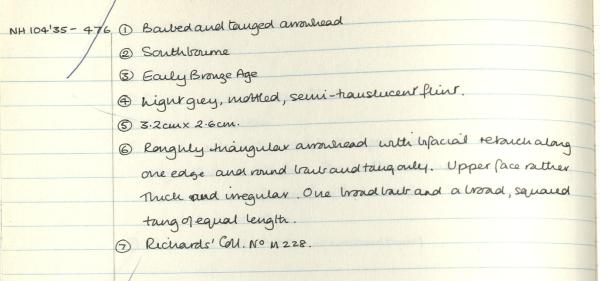 NH104'35-476 ① Barbed and tanged arrowhead
② Southbourne
③ Early Bronze Age
④ Light grey, mottled, semi-translucent flint.
⑤ 3.2cm x 2.6cm.
⑥ Roughly triangular arrowhead with bifacial retouch along
one edge and round barb and tang only. Upper face rather
thick and irregular. One broad barb and a broad, squared
tang of equal length.
⑦ Richards' Coll. No M228.